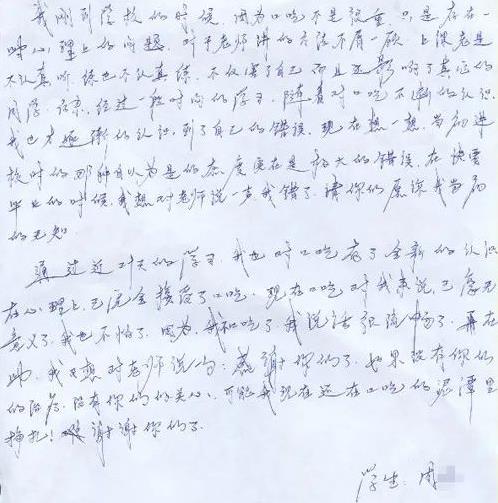 我刚到学校的时候,因为口吃不是很重,只是存在一
些心理上的问题,对于老师讲的方法不屑一顾,上课老是
不认真听,练也不认真练,不仅害了自己,而且还影响了其他的
同学,后来,经过一段时间的学习,随着对口吃不断的认识,
我也才逐渐的认识到了自己的错误,现在想一想,当初进
校时的那种自以为是的态度实在是极大的错误,在快要
毕业的时候,我想对老师说一声我错了,请你们原谅我当初
的无知.
通过近21天的学习,我也对口吃有了全新的认识
在心理上,已完全接受了口吃,现在口吃对我来说,已毫无
意义了,我也不怕了,因为,我和吃了,我说话很流畅了,再在
我只想对老师说句:感谢你们了,如果没有你们
的没有你们的关心,可能我现在还在口吃的泥潭里
挣扎!谢谢你们了.
学生:周